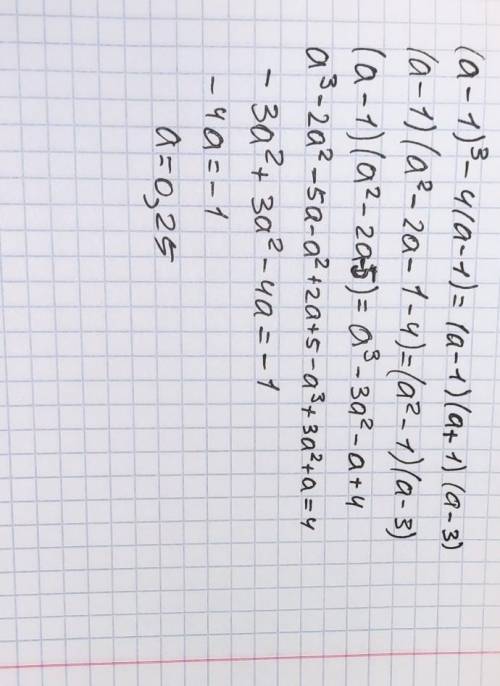 (a-1)³-4(a-1)=(a-1)(a+1)(a-3)
(a-1)(a²-2a-1-4)=(a²-1)(a-3)
(a-1)(a²-2a-5)=a³-3a²-a+4
a³-2a²-5a-a²+2a+5-a³+3a²+a=4
-3a²+3a²-4a=-1
-4a=-1
a=0,25